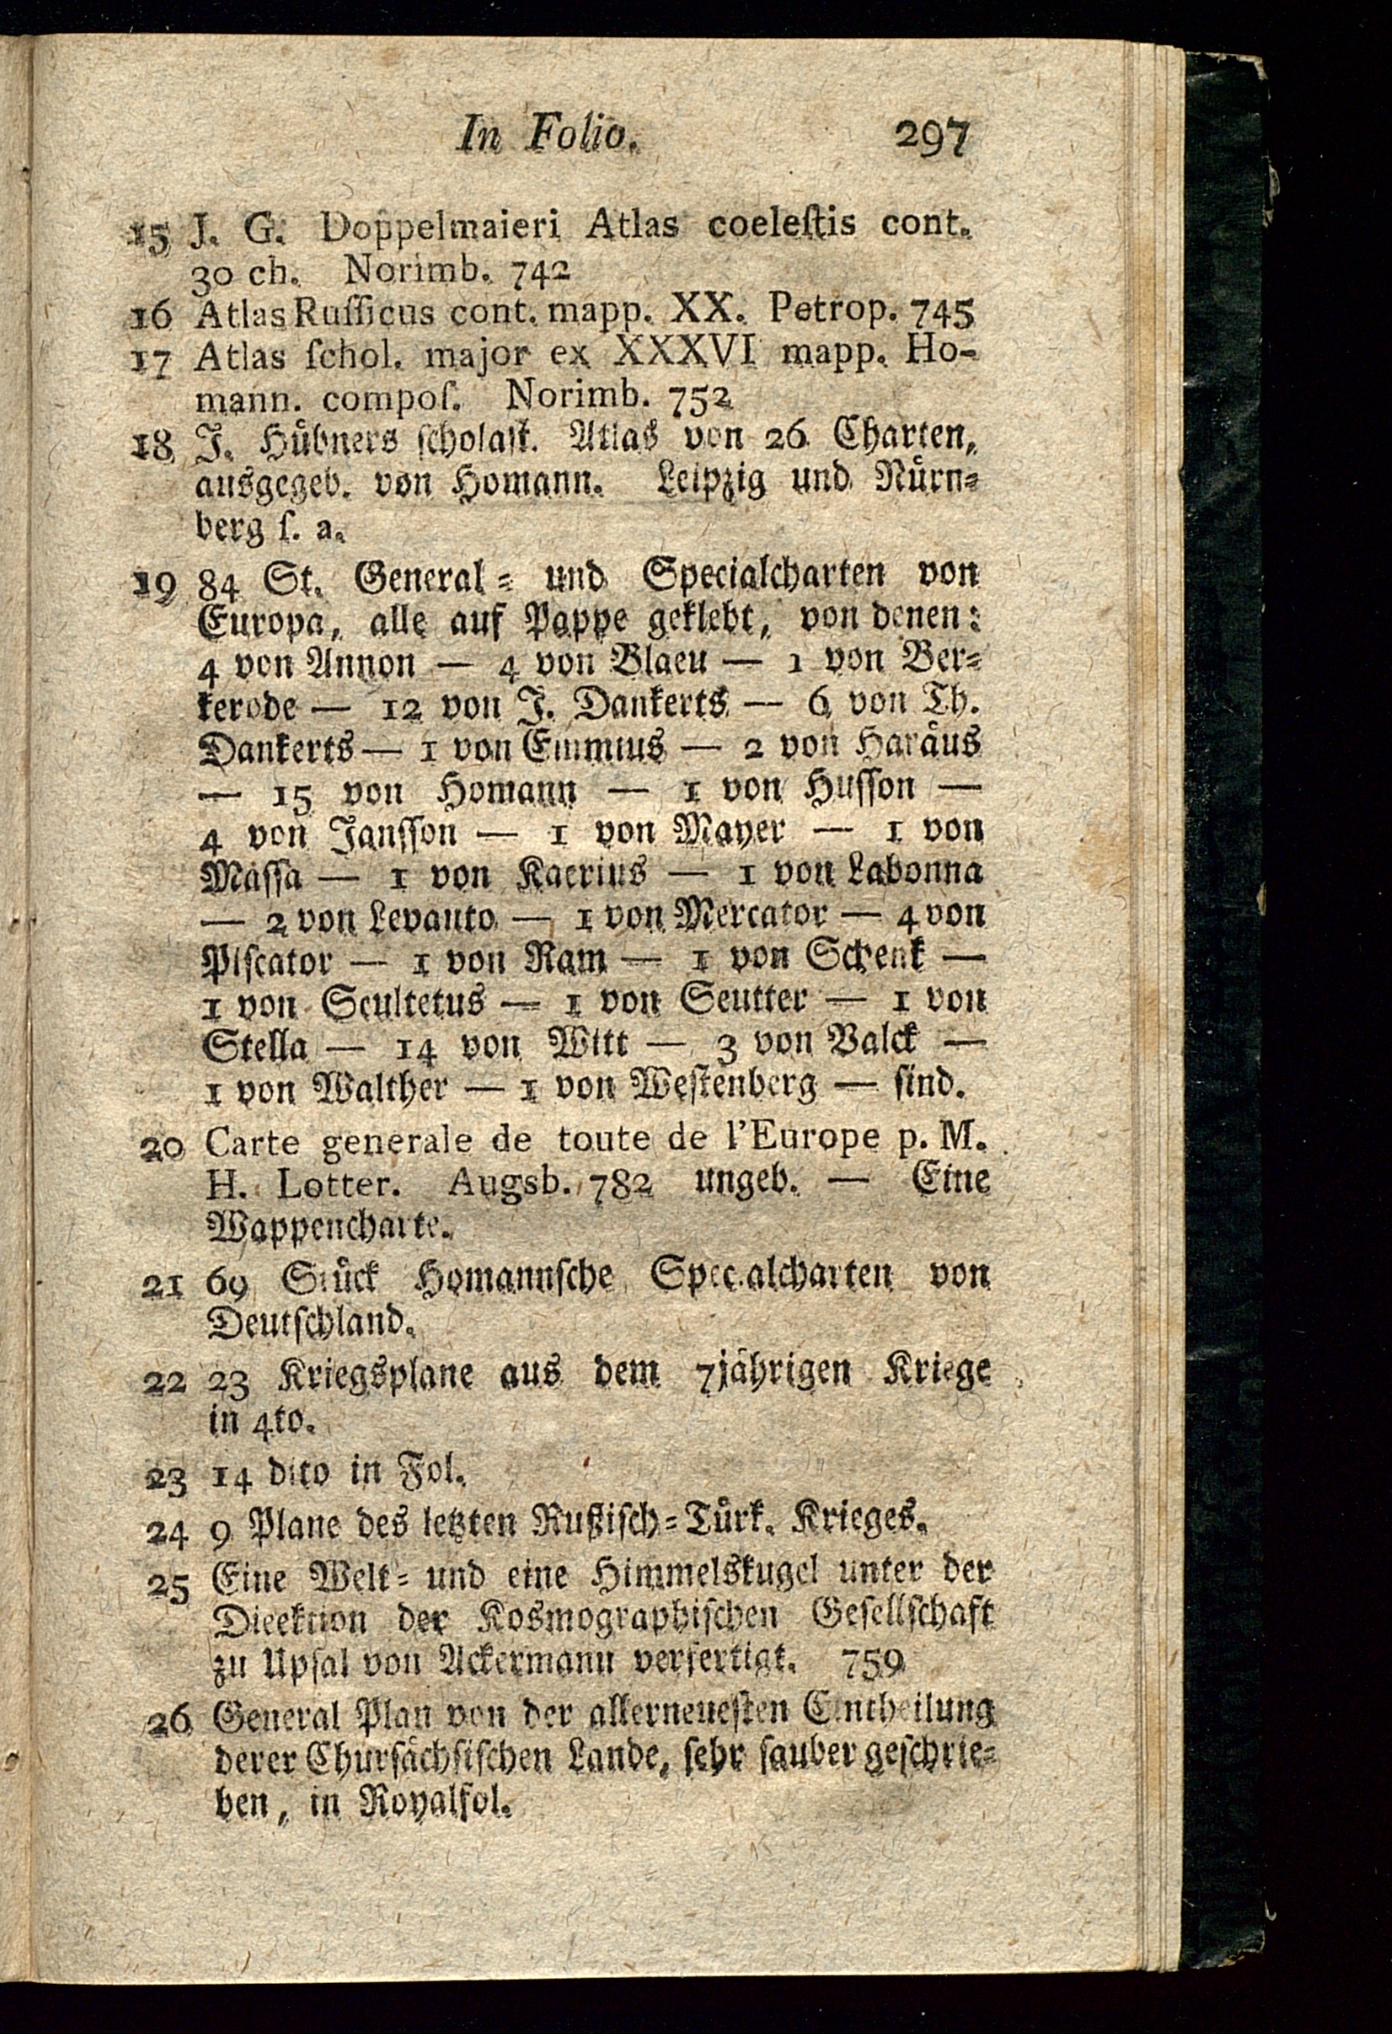 In Folio. 297
15 J. G. Doppelmaieri Atlas coeleſtis cont.
30 ch. Norimb. 742
16 Atlas Ruſſicus cont. mapp. XX. Petrop. 745
17 Atlas ſchol. major ex XXXVI mapp. Ho-
mann. compoſ. Norimb. 752
18 J. Huͤbners ſcholaſt. Atlas von 26 Charten,
ausgegeb. von Homann. Leipzig und Nuͤrn⸗
berg ſ. a.
19 84 St. General⸗ und Specialcharten von
Europa, alle auf Pappe geklebt, von denen:
4 von Annon — 4 von Blaeu — 1 von Ber⸗
kerode — 12 von J. Dankerts — 6 von Th.
Dankerts — 1 von Emmius — 2 von Haraͤus
— 15 von Homann — 1 von Huſſon —
4 von Janſſon — 1 von Mayer — 1 von
Maſſa — 1 von Kaerius — 1 von Labonna
— 2 von Levanto — 1 von Mercator — 4 von
Piſcator — 1 von Ram — 1 von Schenk —
1 von Scultetus — 1 von Seutter — 1 von
Stella — 14 von Witt — 3 von Valck —
1 von Walther — 1 von Weſtenberg — ſind.
20 Carte generale de toute de l'Europe p. M.
H. Lotter. Augsb. 782 ungeb. — Eine
Wappencharte.
21 69 Stuͤck Homannſche Specialcharten von
Deutſchland.
22 23 Kriegsplane aus dem 7jaͤhrigen Kriege
in 4to.
23 14 dito in Fol.
24 9 Plane des letzten Rußiſch⸗Tuͤrk. Krieges.
25 Eine Welt⸗ und eine Himmelskugel unter der
Dieektion der Kosmographiſchen Geſellſchaft
zu Upſal von Ackermann verfertigt. 759
26 General Plan von der allerneueſten Eintheilung
derer Churſaͤchſiſchen Lande, ſehr ſauber geſchrie⸗
ben, in Royalfol.